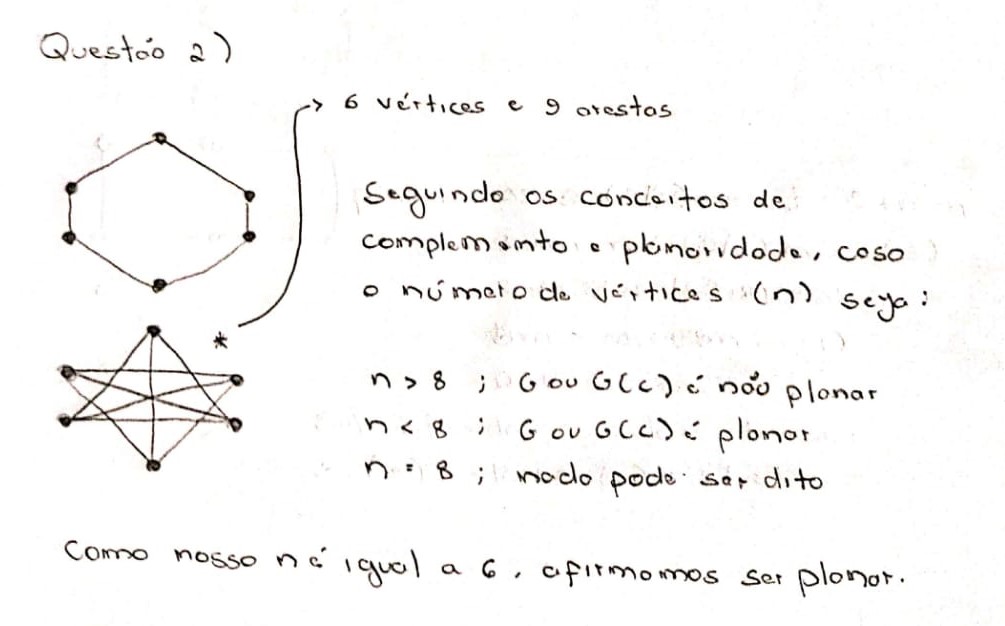 Questão 2)
6 vértices e 9 arestas
Seguindo os conceitos de
complemento e planaridade, caso
o número de vértices (n) seja:
*
n > 8 ; G ou G(c) é não planar
n < 8 ; G ou G(c) é planar
n = 8 ; nada pode ser dito
Como nosso n é igual a 6, afirmamos ser planar.